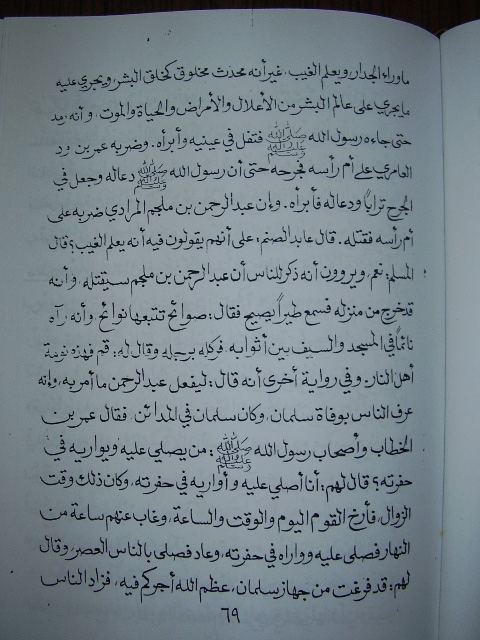 ماوراء الجدار، ويعلم الغيب، غيرأنه محدث مخلوق كخلق البشر، ويجري عليه
مايجري على عالم البشر من الأعلال والأمراض والحياة والموت، وأنه رمد
حتى جاءه رسول الله ﷺ فتفل في عينيه وأبرأه. وضربه عمربن ود
العامري على أم رأسه فجرحه حتى أن رسول الله ﷺ دعاله وجعل في
الجرح تراباً ودعاله فأبرأه. وإن عبدالرحمن بن ملجم المرادي ضربه على
أم رأسه فقتله. قال عابدالصنم: على أنهم يقولون فيه أنه يعلم الغيب؟ قال
المسلم: نعم، ويروون أنه ذكر للناس أن عبدالرحمن بن ملجم سيقتله، وأنه
قدخرج من منزله فسمع طيراً يصيح فقال: صوائح تتبعها نوائح، وأنه رآه
نائماً في المسجد والسيف بين أثوابه. فركله برجله وقال له: قم فهذه نومة
أهل النار. وفي رواية أخرى أنه قال: ليفعل عبدالرحمن ما أمر به، وإنه
عرف الناس بوفاة سلمان، وكان سلمان في المدائن. فقال عمربن
الخطاب وأصحاب رسول الله ﷺ: من يصلي عليه ويواريه في
حفرته؟ قال لهم: أنا أصلي عليه وأواريه في حفرته، وكان ذلك وقت
الزوال، فأرخ القوم اليوم والوقت والساعة، وغاب عنهم ساعة من
النهار فصلى عليه وواراه في حفرته، وعاد فصلى بالناس العصر، وقال
لهم: قد فرغت من جهاز سلمان، عظم الله أجركم فيه، فزاد الناس
٦٩